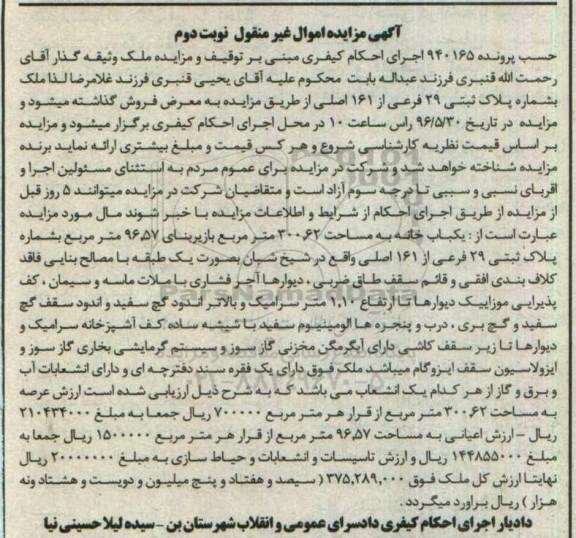 آگهی مزایده اموال غیر منقول نوبت دوم
حسب پرونده ۹۴۰۱۶۵ اجرای احکام کیفری مبنی بر توقیف و مزایده ملک وثیقه گذار آقای
رحمت الله قنبری فرزند عبداله بابت محکوم علیه آقای یحیی قنبری فرزند غلامرضا لذا ملک
بشماره پلاک ثبتی ۲۹ فرعی از ۱۶۱ اصلی از طریق مزایده به معرض فروش گذاشته میشود و
مزایده در تاریخ ۹۶/۵/۳۰ راس ساعت ۱۰ در محل اجرای احکام کیفری برگزار میشود و مزایده
بر اساس قیمت نظریه کارشناسی شروع و هر کس قیمت و مبلغ بیشتری ارائه نماید برنده
مزایده شناخته خواهد شد و شرکت در مزایده برای عموم مردم به استثنای مسئولین اجرا و
اقربای نسبی و سببی تا درجه سوم آزاد است و متقاضیان شرکت در مزایده میتوانند ۵ روز قبل
از مزایده از طریق اجرای احکام از شرایط و اطلاعات مزایده با خبر شوند مال مورد مزایده
عبارت است از : یکباب خانه به مساحت ۳۰۰,۶۲ متر مربع بازیربنای ۹۶,۵۷ متر مربع بشماره
پلاک ثبتی ۲۹ فرعی از ۱۶۱ اصلی واقع در شیخ شبان بصورت یک طبقه با مصالح بنایی فاقد
کلاف بندی افقی و قائم سقف طاق ضربی ، دیوارها آجر فشاری با ملات ماسه و سیمان ، کف
پذیرایی موزاییک دیوارها تا ارتفاع ۱,۱۰ متر سرامیک و بالاتر اندود گچ سفید و اندود سقف گچ
سفید و گچ بری ، درب و پنجره ها الومینیوم سفید با شیشه ساده کف آشپزخانه سرامیک و
دیوارها تا زیر سقف کاشی دارای آبگرمگن مخزنی گاز سوز و سیستم گرمایشی بخاری گاز سوز و
ایزولاسیون سقف ایزوگام میباشد ملک فوق دارای یک فقره سند دفترچه ای و دارای انشعابات آب
و برق و گاز از هر کدام یک انشعاب می باشد که به شرح ذیل ارزیابی شده است ارزش عرصه
به مساحت ۳۰۰,۶۲ متر مربع از قرار هر متر مربع ۷۰۰۰۰۰ ریال جمعا به مبلغ ۲۱۰۴۳۴۰۰۰
ریال - ارزش اعیانی به مساحت ۹۶,۵۷ متر مربع از قرار هر متر مربع ۱۵۰۰۰۰۰ ریال جمعا به
مبلغ ۱۴۴۸۵۵۰۰۰ ریال و ارزش تاسیسات و انشعابات و حیاط سازی به مبلغ ۲۰۰۰۰۰۰۰ ریال
نهایتا ارزش کل ملک فوق ۳۷۵,۲۸۹,۰۰۰ ( سیصد و هفتاد و پنج میلیون و دویست و هشتاد ونه
هزار ) ریال براورد میگردد .
دادیار اجرای احکام کیفری دادسرای عمومی و انقلاب شهرستان بن - سیده لیلا حسینی نیا